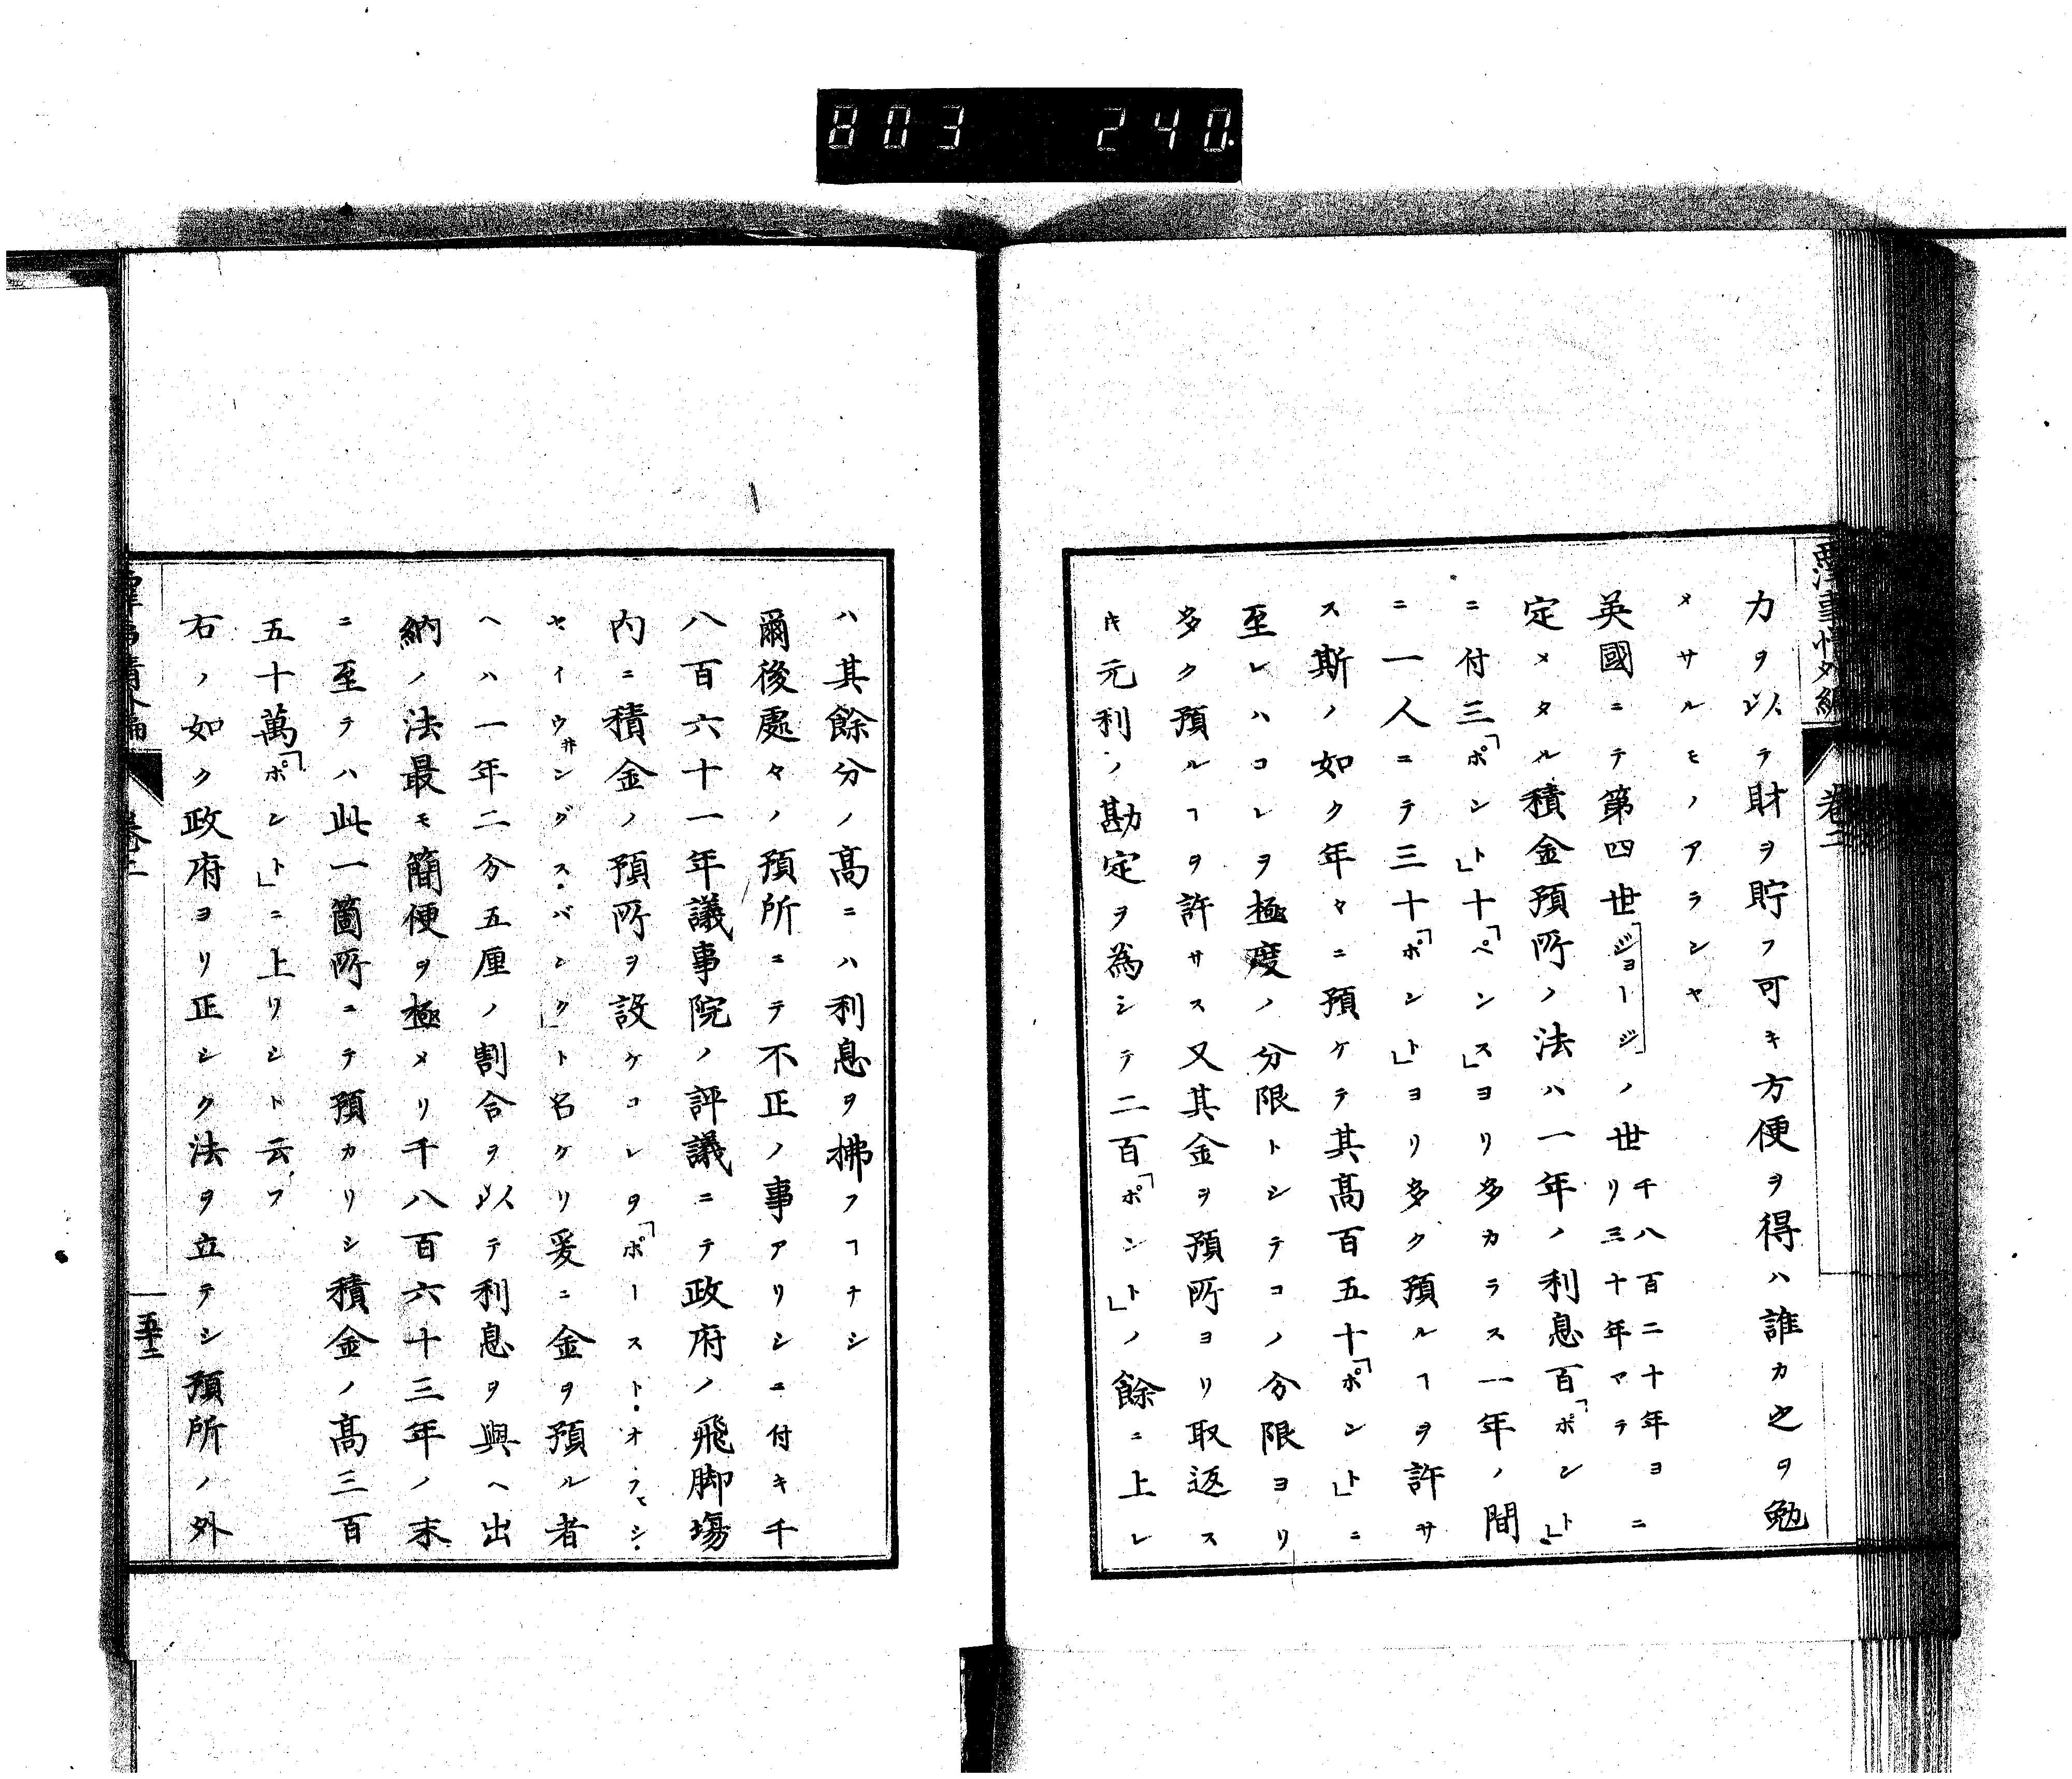 803 240.
西洋事情外編 卷二
力ヲ以テ財ヲ貯フ可キ方便ヲ得ハ誰カ之ヲ勉
メサルモノアランヤ
英國ニテ第四世「ジョージ」ノ世千八百二十年ヨリ三十年マテニ
定メタル積金預所ノ法ハ一年ノ利息百「ポンント」
ニ付三「ポント」十「ペンス」ヨリ多カラス一年ノ間
ニ一人ニテ三十「ポント」ヨリ多ク預ルヿヲ許サ
ス斯ノ如ク年々ニ預ケテ其高百五十「ポント」ニ
至レハコレヲ極度ノ分限トシテコノ分限ヨリ
多ク預ルヿヲ許サス又其金ヲ預所ヨリ取返ス
キ元利ノ勘定ヲ為シテ二百「ポント」ノ餘ニ上レ
ハ其餘分ノ高ニハ利息ヲ拂フヿナシ
爾後處々ノ預所ニテ不正ノ事アリシニ付キ千
八百六十一年議事院ノ評議ニテ政府ノ飛脚塲
内ニ積金ノ預所ヲ設ケコレヲ「ポースト・オフヒシ・
セイウ井ングス・バンク」ト名ケリ爰ニ金ヲ預ル者
ヘハ一年二分五厘ノ割合ヲ以テ利息ヲ與ヘ出
納ノ法最モ簡便ヲ極メリ千八百六十三年ノ末
ニ至テハ此一箇所ニテ預カリシ積金ノ高三百
五十萬「ポント」ニ上リシト云フ
右ノ如ク政府ヨリ正シク法ヲ立テシ預所ノ外
西洋事情外編 卷二 五十二